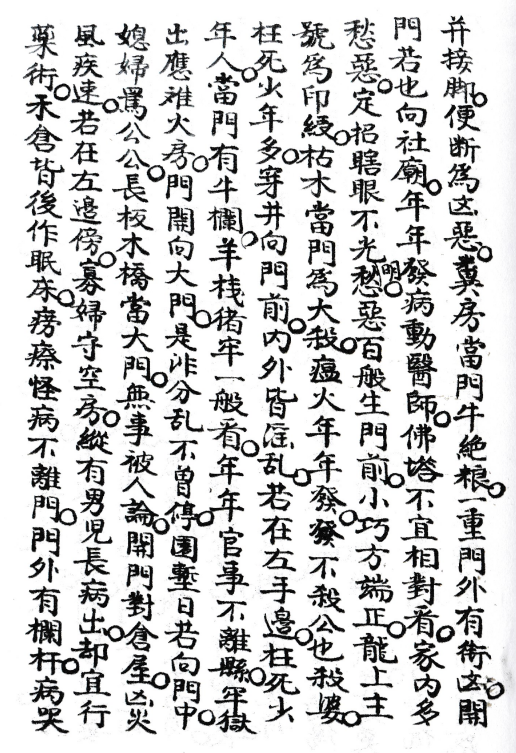 并接脚。便断為凶惡。糞房當門牛絶粮。一重門外有街凶。開
門若也向社廟。年年發病動醫師。佛塔不宜相對看。家內多
愁惡。定招瞎眼不光明。愁惡百般生門前。小巧方端正。龍上主
號為印綬。枯木當門為大殺。瘟火年年發。發不殺公也殺婆。
枉死少年多。穿井向門前。內外皆淫乱。若在左手邊。枉死少
年人。當門有牛欄。羊栈猪牢一般看。年年官事不離縣。牢獄
出應难。火房門開向大門。是非分乱不曽停。園塹日若向門中。
媳婦罵公公。長板木橋當大門。無事被人論。開門對倉屋。凶災
風疾速。若在左邊傍。寡婦守空房。縱有男児長病出。却宜行
藥術。禾倉背後作眠床。痨瘵怪病不離門。門外有欄杆。病哭